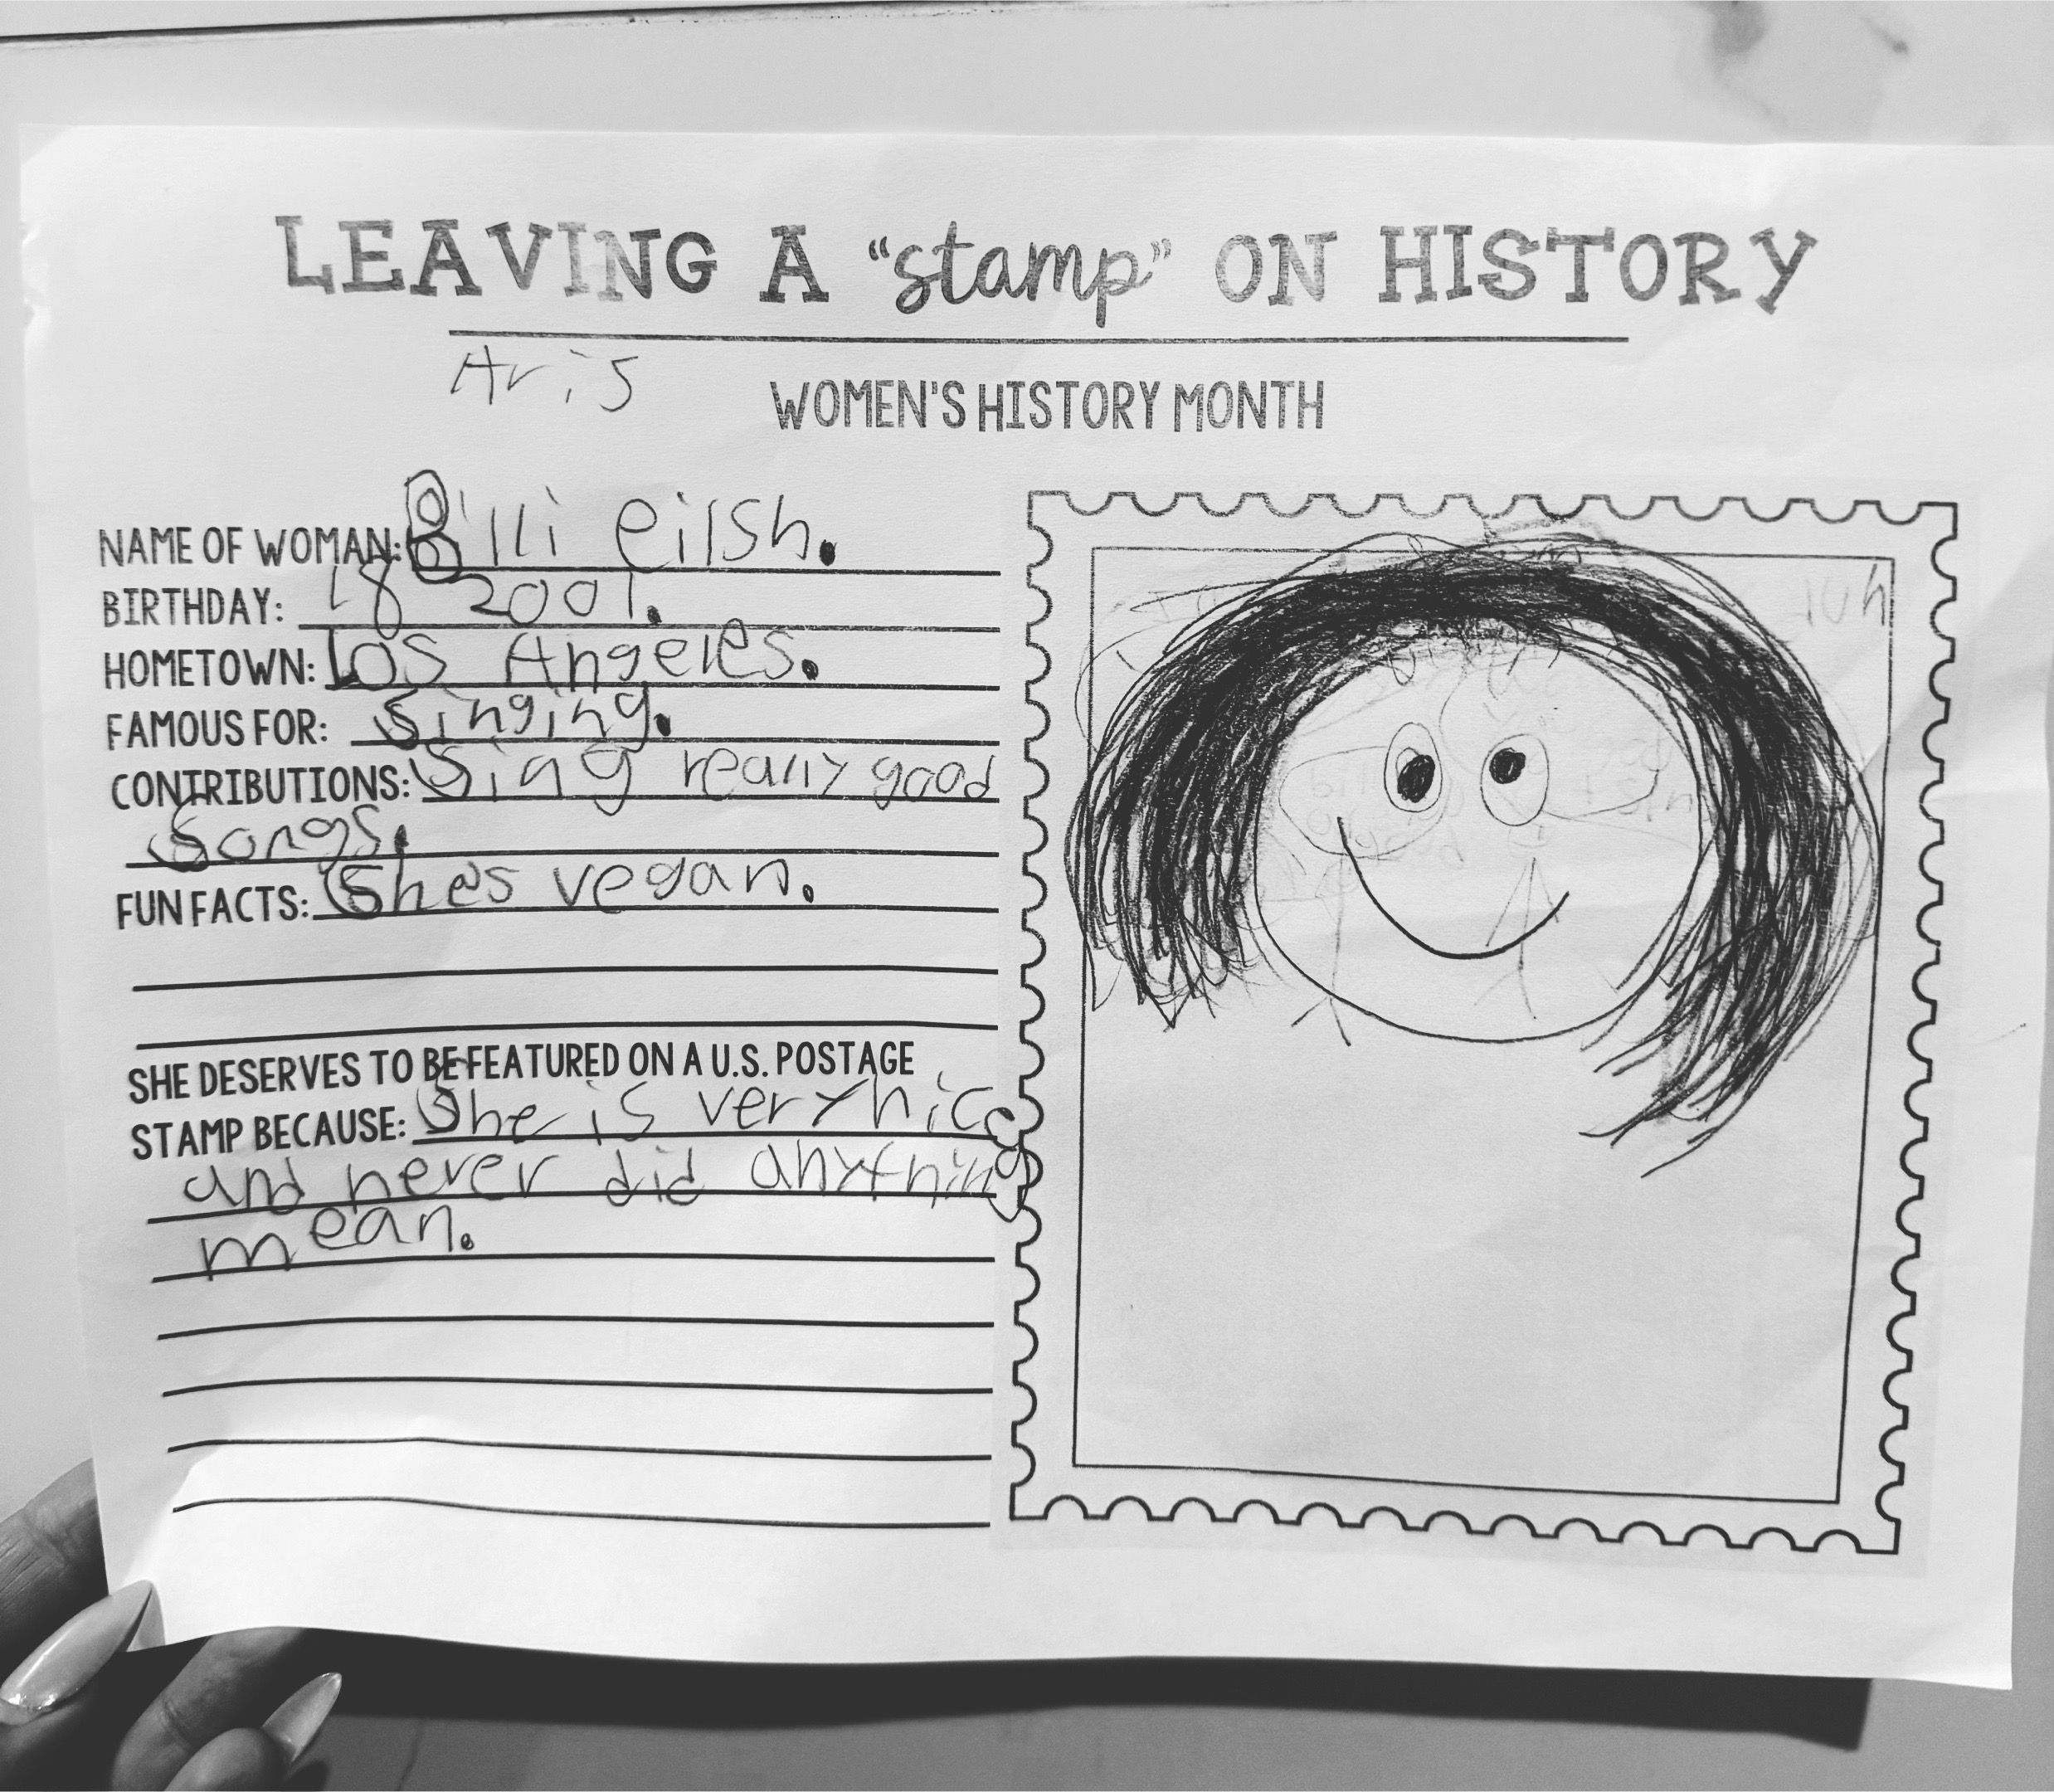 LEAVING A "stamp" ON HISTORY
Aris
WOMEN'S HISTORY MONTH
NAME OF WOMAN: Billi eilsh.
BIRTHDAY: 18 2001.
HOMETOWN: Los Angeles.
FAMOUS FOR: Singing.
CONTRIBUTIONS: Sing really good
Songs.
FUN FACTS: Shes vegan.
SHE DESERVES TO BE FEATURED ON A U.S. POSTAGE
STAMP BECAUSE: She is very nice
and never did anything
mean.